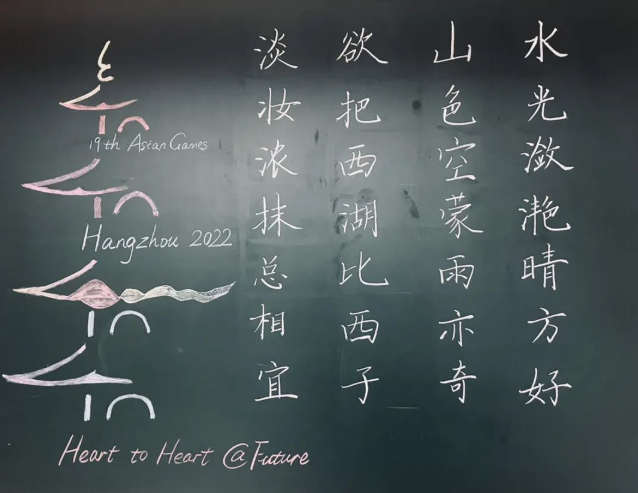 水光潋滟晴方好
山色空蒙雨亦奇
欲把西湖比西子
淡妆浓抹总相宜
19th Asian Games
Hangzhou 2022
Heart to Heart @Future